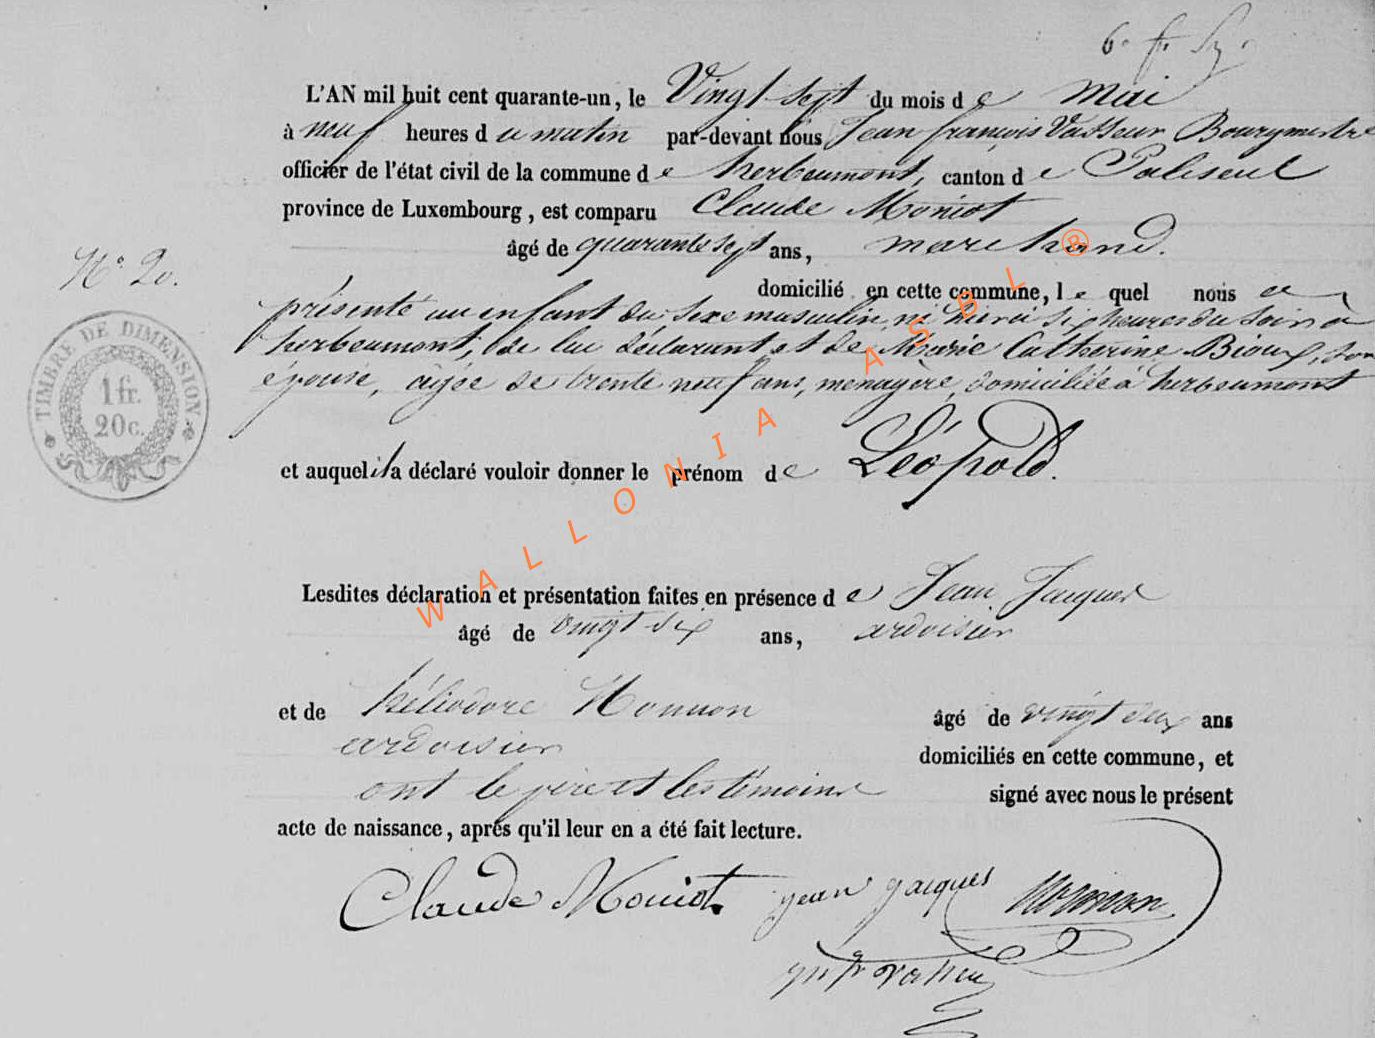 L'AN mil huit cent quarante-un, le Vingt sept du mois de mai
à neuf heures du matin par-devant nous Jean françois Vasseur Bourgmestre
officier de l'état civil de la commune de herbeumont, canton de Paliseul
province de Luxembourg, est comparu Claude Moniot
âgé de quarante sept ans, marchand.
N.° 20.
domicilié en cette commune, lequel nous a
présenté un enfant du sexe masculin, né hier à six heures du soir à
herbeumont, de lui déclarant et de Marie Catherine Bioux, son
épouse, agée de trente neuf ans, menagère, domiciliée à herbeumont
TIMBRE DE DIMENSION
1 fr.
20 c.
et auquel il a déclaré vouloir donner le prénom de Léopold.
Lesdites déclaration et présentation faites en présence de Jean Jacques
âgé de vingt six ans, ardoisier
et de héliodore Nonnon âgé de vingt deux ans
ardoisier domiciliés en cette commune, et
ont le père et les témoins signé avec nous le présent
acte de naissance, après qu'il leur en a été fait lecture.
Claude Moniot. jean jacques Nonnon
WALLONIA ASBL ®